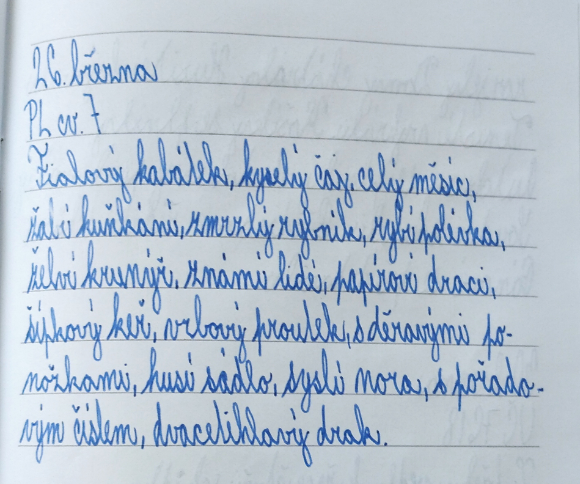 26. března
PL cv. 7
Fialový kabátek, kyselý čaj, celý měsíc,
žabí kuňkání, zmrzlý rybník, rybí polévka,
želví krunýř, známí lidé, papíroví draci,
šípkový keř, vrbový proutek, s děravými po-
nožkami, husí sádlo, syslí nora, s pořado-
vým číslem, dvacetihlavý drak.